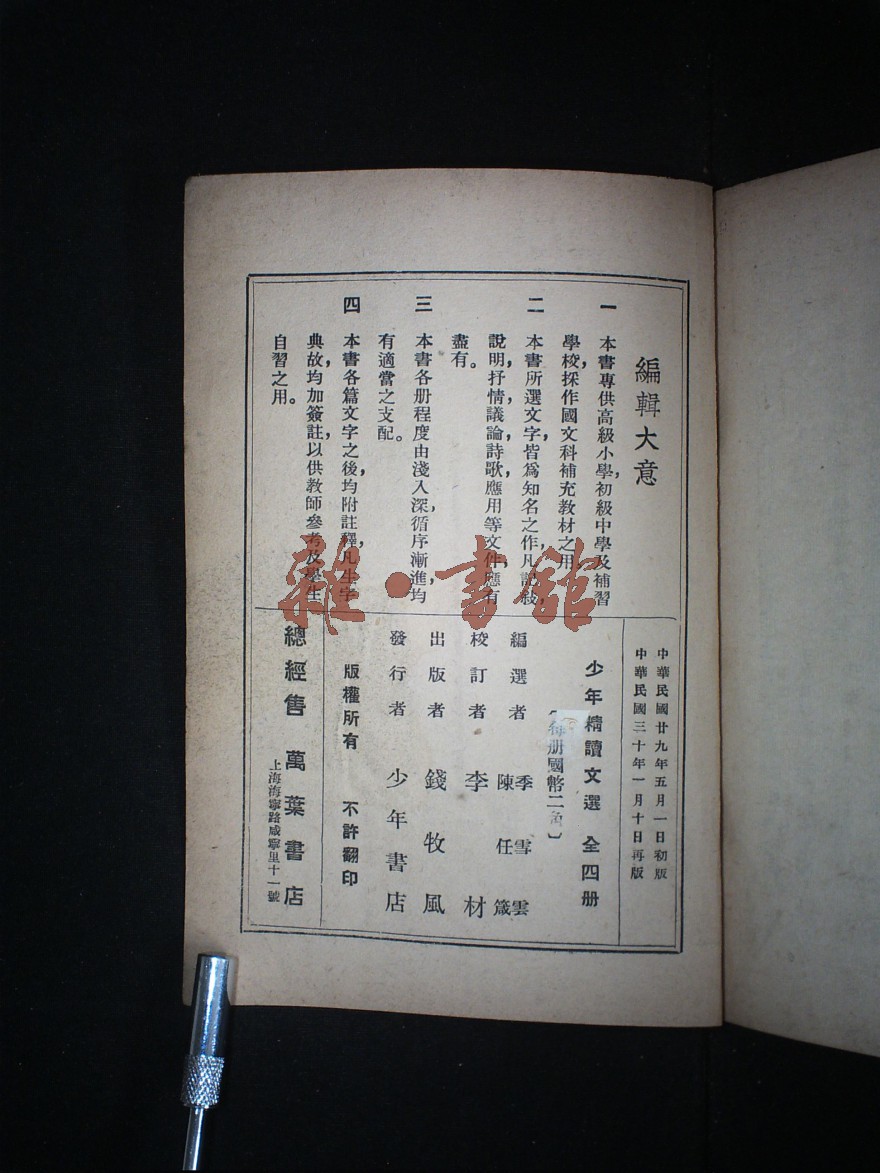 編輯大意
一 本書專供高級小學，初級中學及補習
學校，採作國文科補充教材之用。
二 本書所選文字，皆爲知名之作，凡記敍，
說明，抒情，議論，詩歌，應用等文件，應有
盡有。
三 本書各册程度，由淺入深，循序漸進，均
有適當之支配。
四 本書各篇文字之後，均附註釋，凡生字
典故，均加簽註，以供教師參考及學生
自習之用。
中華民國廿九年五月一日初版
中華民國三十年一月十日再版
少年精讀文選 全四册
〔每册國幣二角〕
編選者 季雪雲
陳任箴
校訂者 李材
出版者 錢牧風
發行者 少年書店
版權所有 不許翻印
總經售 萬葉書店
上海海寧路咸寧里十一號
雜·書館